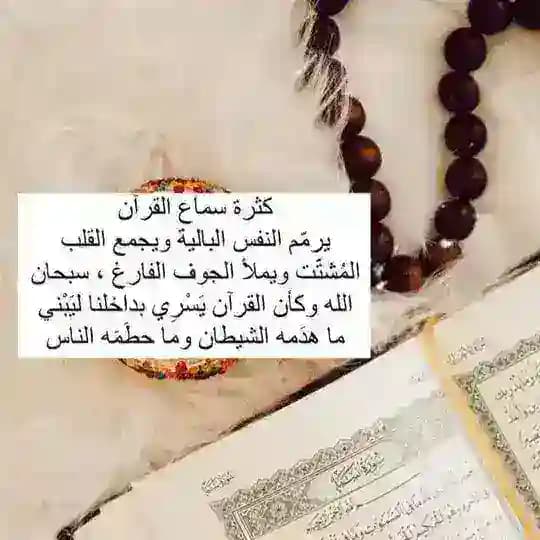 كثرة سماع القرآن
يرمّم النفس البالية ويجمع القلب
المُشتّت ويملأ الجوف الفارغ ، سبحان
الله وكأن القرآن يَسْرِي بداخلنا ليَبْني
ما هدَمه الشيطان وما حطّمَه الناس